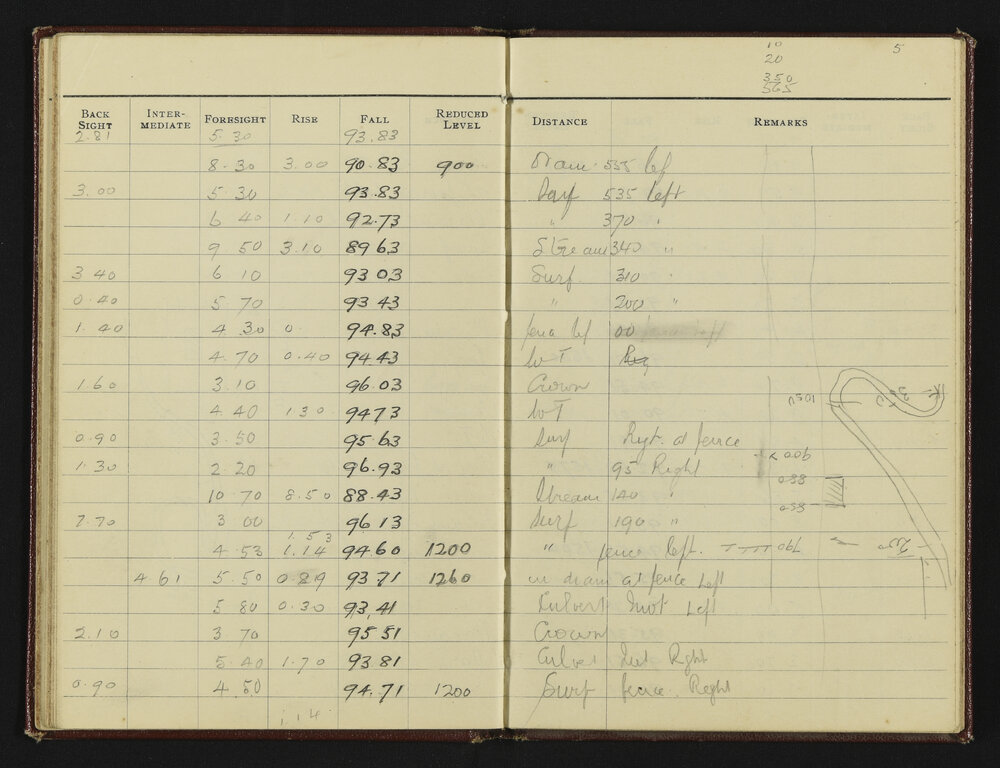 10 5
20
350
565
BACK SIGHT INTER-MEDIATE FORESIGHT RISE FALL REDUCED LEVEL DISTANCE REMARKS
2.81 5.30 93.83
8.30 3.00 90.83 900 535 lef
3.00 5.30 93.83 535 left
6 40 1.10 92.73 " 370 "
9 50 3.10 89 63 Stream 340 "
3 40 6 10 93 03 Surf 310
0.40 5.70 93 43 " 200 "
1.40 4 30 0 94.83 00
4.70 0.40 94.43 W T
1.60 3.10 96.03 Crown
4 40 1 30 94 73 W T 1050
0.90 3.50 95.63 Surf Ryt. at fence
1.30 2.20 96.93 " 95 Right 900
10 70 8.50 88.43 Stream 140 " 880
7.70 3 00 96 13 Surf 190 " 850
1.53
4 53 1.14 94.60 1200 " fence left. 790
4 61 5.50 0.89 93 71 1260 in drain at fence Left
5 80 0.30 93,41 Culvert Left
2.10 3 70 95 51 Crown
5 40 1.70 93.81 Right
0.90 4.50 94.71 1200 Surf fence. Right
1.14